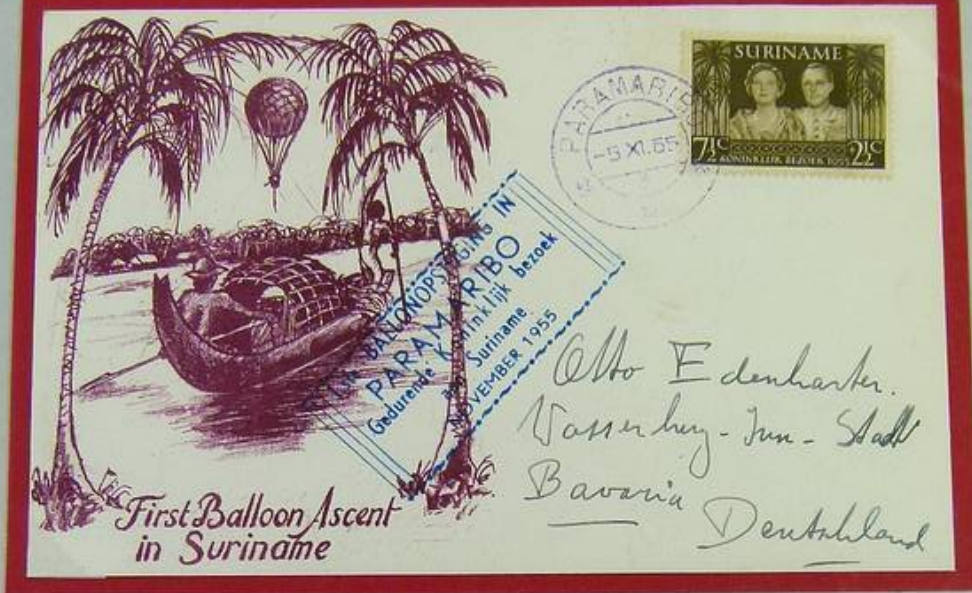 SURINAME
7½c KONINKLIJK BEZOEK 1955 2½c
PARAMARIBO
-5 XI.55
BALLONOPSTIJGING IN
PARAMARIBO
Gedurende Koninklijk bezoek
aan Suriname
NOVEMBER 1955
Otto Edenharter.
Wasserburg-Inn-Stadt
Bavaria
Deutschland
First Balloon Ascent
in Suriname